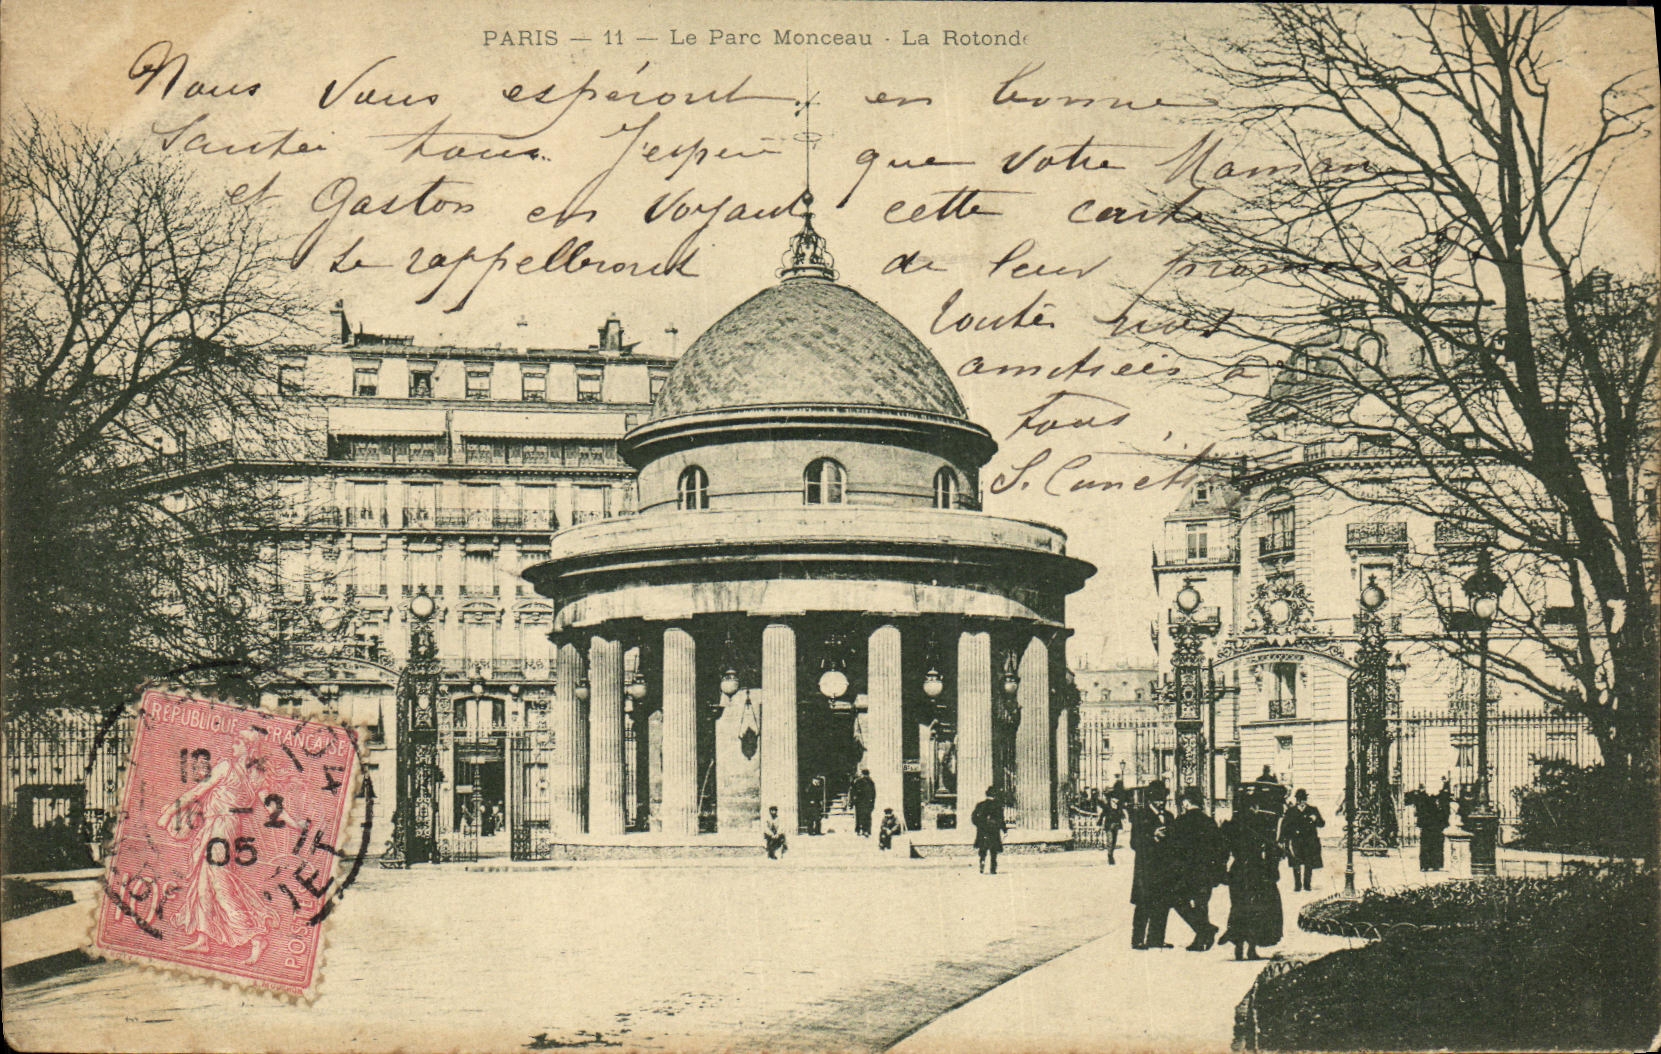 PARIS — 11 — Le Parc Monceau - La Rotonde
Nous vous espéront en bonne
Santée tous. J'espère que votre Maman
et Gaston en voyant cette carte
se rappelleront de leur promenade
toutes nos
amitiées à
tous
REPUBLIQUE FRANÇAISE
16 -2
05
10
POSTES